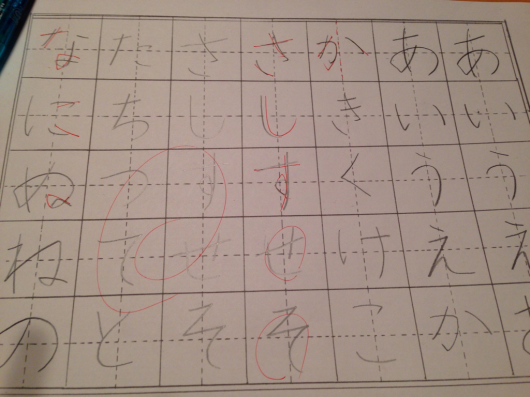 あいうえ
あいうえか
かきくけこ
さしすせそ
さしすせそ
たちつてと
なにぬねの